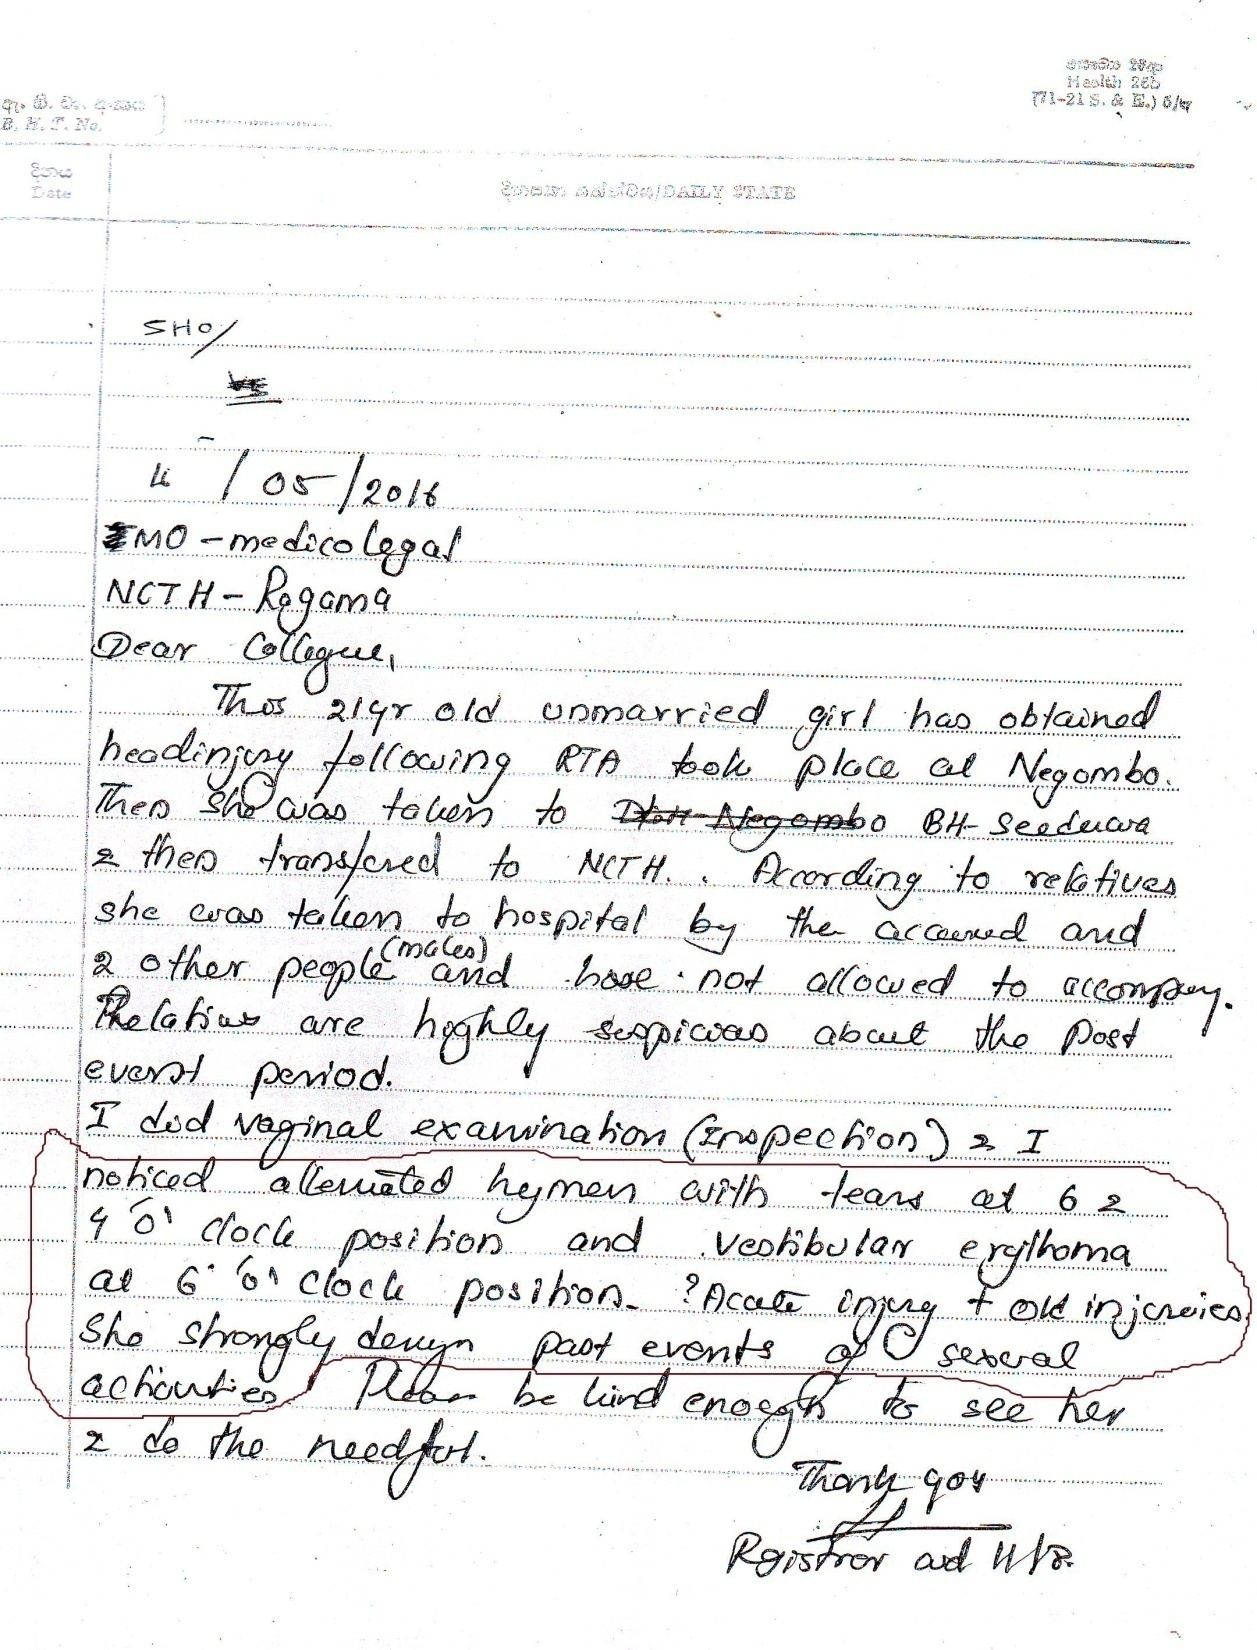 Health 26b
(71-21 S. & E.) 5/
B. H. T. No.
දිනය
Date
DAILY STATE
SHO/
4 / 05 / 2016
MO - medico legal
NCTH - Ragama
Dear Collegue,
This 21yr old unmarried girl has obtained
headinjury following RTA took place at Negombo.
Then she was taken to Negombo BH- Seeduwa
& then transfered to NCTH. According to relatives
she was taken to hospital by the accused and
2 other people (males) and have not allowed to accompany.
Relatives are highly suspicious about the post
event period.
I did vaginal examination (Inspection) & I
noticed attenuated hymen with tears at 6 &
9 o' clock position and vestibular erythema
at 6 o' clock position. ?Acute injury + old injuries
She strongly denyn past events of sexual
activities. Please be kind enough to see her
& do the needful.
Thank you
Registrar